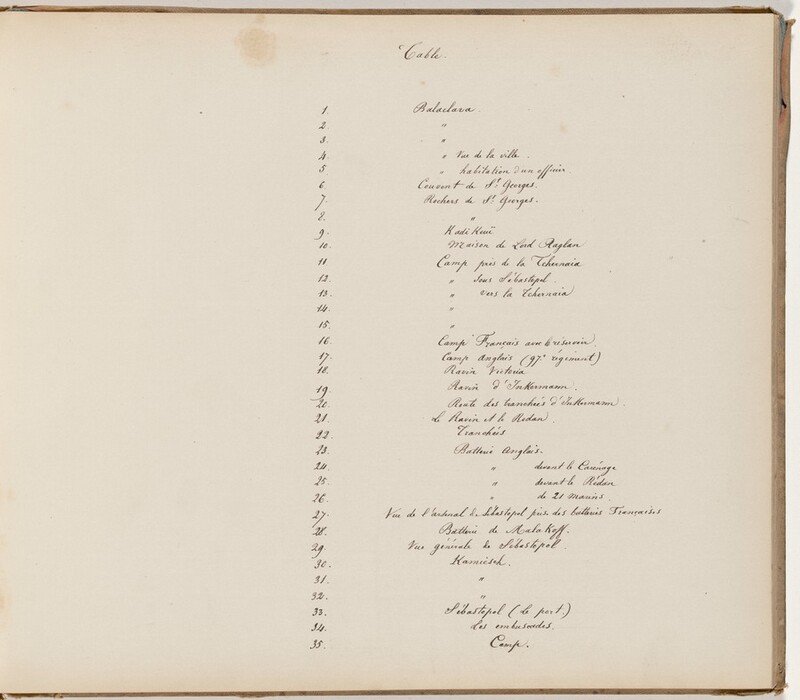 Table.
1. Balaclava.
2. "
3. "
4. " Vue de la ville.
5. " habitation d'un officier
6. Couvent de St Georges.
7. Rochers de St Georges.
8. "
9. Kadi Keuï
10. Maison de Lord Raglan
11. Camp près de la Tchernaïa
12. " sous Sébastopol.
13. " vers la Tchernaïa
14. "
15. "
16. Camp Français avec
17. Camp anglais (97e régiment)
18. Ravin Victoria
19. Ravin d'Inkermann.
20. Route des tranchées d'Inkermann.
21. Le Ravin et le Redan.
22. Tranchées
23. Batterie Anglais.
24. " devant le Carénage
25. " devant le Rédan
26. " de 21 marins.
27. Vue de l'arsenal de Sébastopol prise des batteries Françaises
28. Batterie de Malakoff.
29. Vue générale de Sébastopol.
30. Kamiesch.
31. "
32. "
33. Sébastopol (le port.)
34. Les embuscades.
35. Camp.